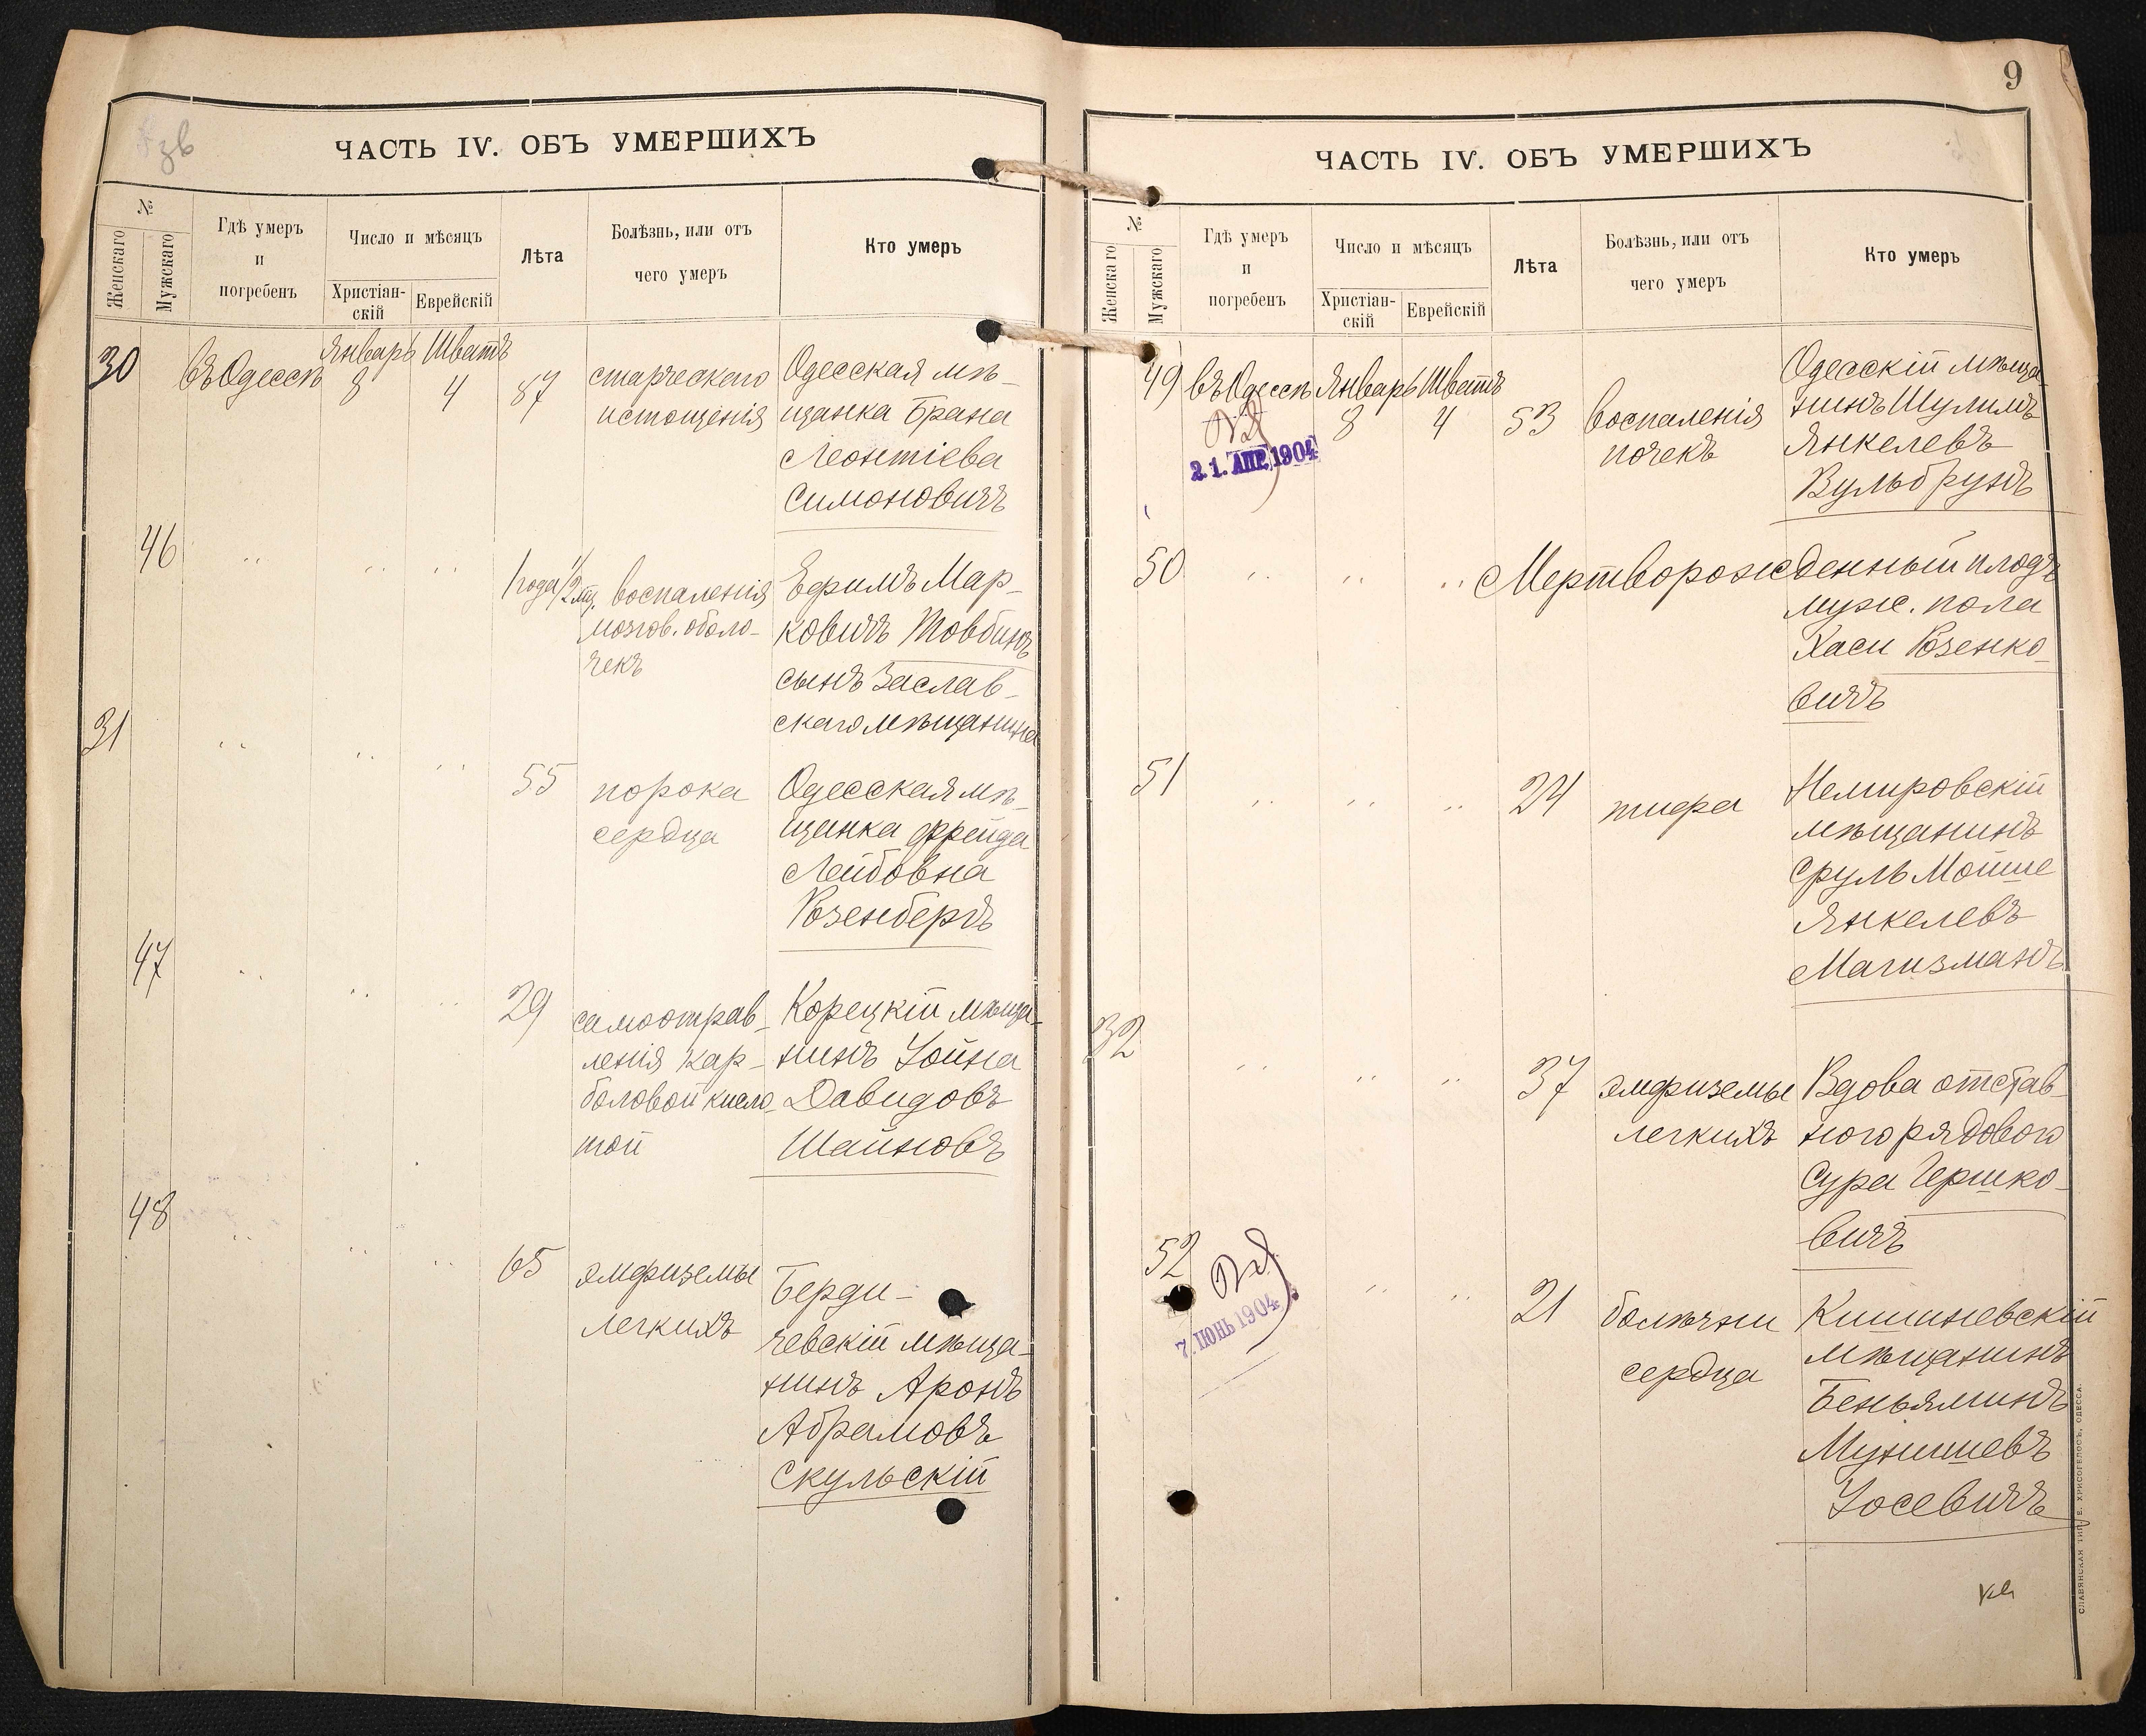 ЧАСТЬ IV. ОБЪ УМЕРШИХЪ
№
Женскаго
Мужскаго
Гдѣ умеръ
и
погребенъ
Число и мѣсяцъ
Христіан-
скій
Еврейскій
Лѣта
Болѣзнь, или отъ
чего умеръ
Кто умеръ
30
въ Одессѣ
Январь
8
Шватъ
4
87
старческаго
истощенія
Одесская мѣ-
щанка Брана
Леонтіева
Симоновичъ
46
1 года 1/2 мц.
воспаленія
мозгов. оболо-
чекъ
Ефимъ Мар-
ковичъ Товбинъ
сынъ Заслав-
скаго мѣщанина
31
55
порока
сердца
Одесская мѣ-
щанка Фрейда
Лейбовна
Розенбергъ
47
29
самоотрав-
ленія кар-
боловой кисло-
той
Корецкій мѣща-
нинъ Іойна
Давидовъ
Шайновъ
48
65
эмфиземы
легкихъ
Берди-
чевскій мѣща-
нинъ Аронъ
Абрамовъ
Скульскій
9
ЧАСТЬ IV. ОБЪ УМЕРШИХЪ
№
Женскаго
Мужскаго
Гдѣ умеръ
и
погребенъ
Число и мѣсяцъ
Христіан-
скій
Еврейскій
Лѣта
Болѣзнь, или отъ
чего умеръ
Кто умеръ
49
въ Одессѣ
21. АПР. 1904
Январь
8
Шватъ
4
53
воспаленія
почекъ
Одесскій мѣща
нинъ Шулимъ
Янкелевъ
Вульбрунъ
50
Мертворожденный плодъ
муж. пола
Хаси Розенко-
вичъ
51
24
тифа
Немировскій
мѣщанинъ
Сруль Мойше
Янкелевъ
Магизманъ
32
37
эмфиземы
легкихъ
Вдова отстав-
ного рядового
Сура Гершко-
вичъ
52
7. ІЮНЬ 1904
21
болѣзни
сердца
Кишиневскій
мѣщанинъ
Беньяминъ
Мунишевъ
Іосевичъ
СЛАВЯНСКАЯ ТИП. Е. ХРИСОГЕЛОСЪ, ОДЕССА.